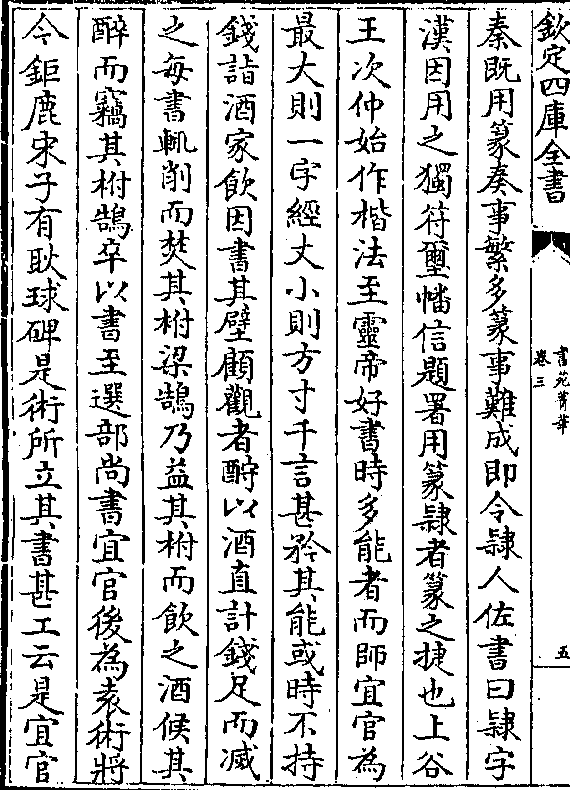 欽定四庫全書
書苑菁華
卷三
五
秦既用篆奏事繁多篆事難成即令隸人佐書曰隸字
漢因用之獨符璽幡信題署用篆隸者篆之捷也上谷
王次仲始作楷法至靈帝好書時多能者而師宜官為
最大則一字經丈小則方寸千言甚矜其能或時不持
錢詣酒家飲因書其壁顧觀者酧以酒直計錢足而滅
之每書輒削而焚其柎梁鵠乃益其柎而飲之酒候其
醉而竊其柎鵠卒以書至選部尚書宜官後為袁術將
今鉅鹿宋子有耿球碑是術所立其書甚工云是宜官